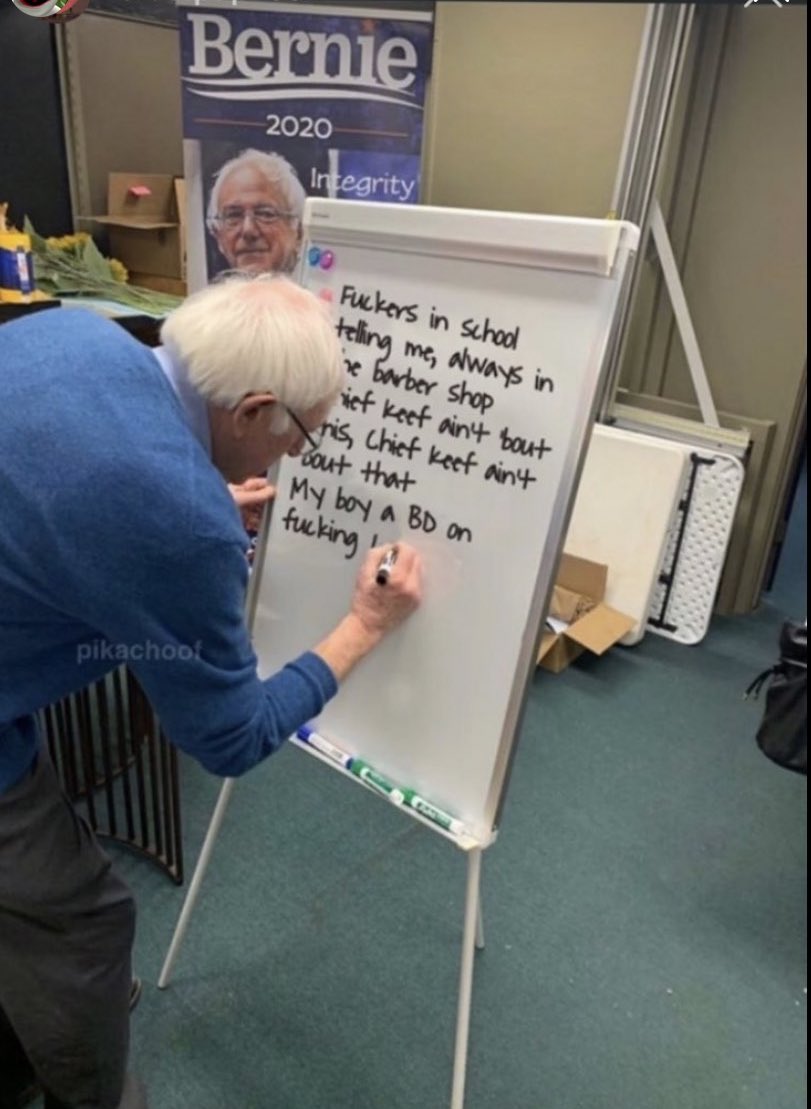 Bernie
2020
Integrity
Fuckers in school
telling me, always in
he barber shop
hief keef ain't bout
his, Chief keef ain't
bout that
My boy a BD on
fucking
pikachoof